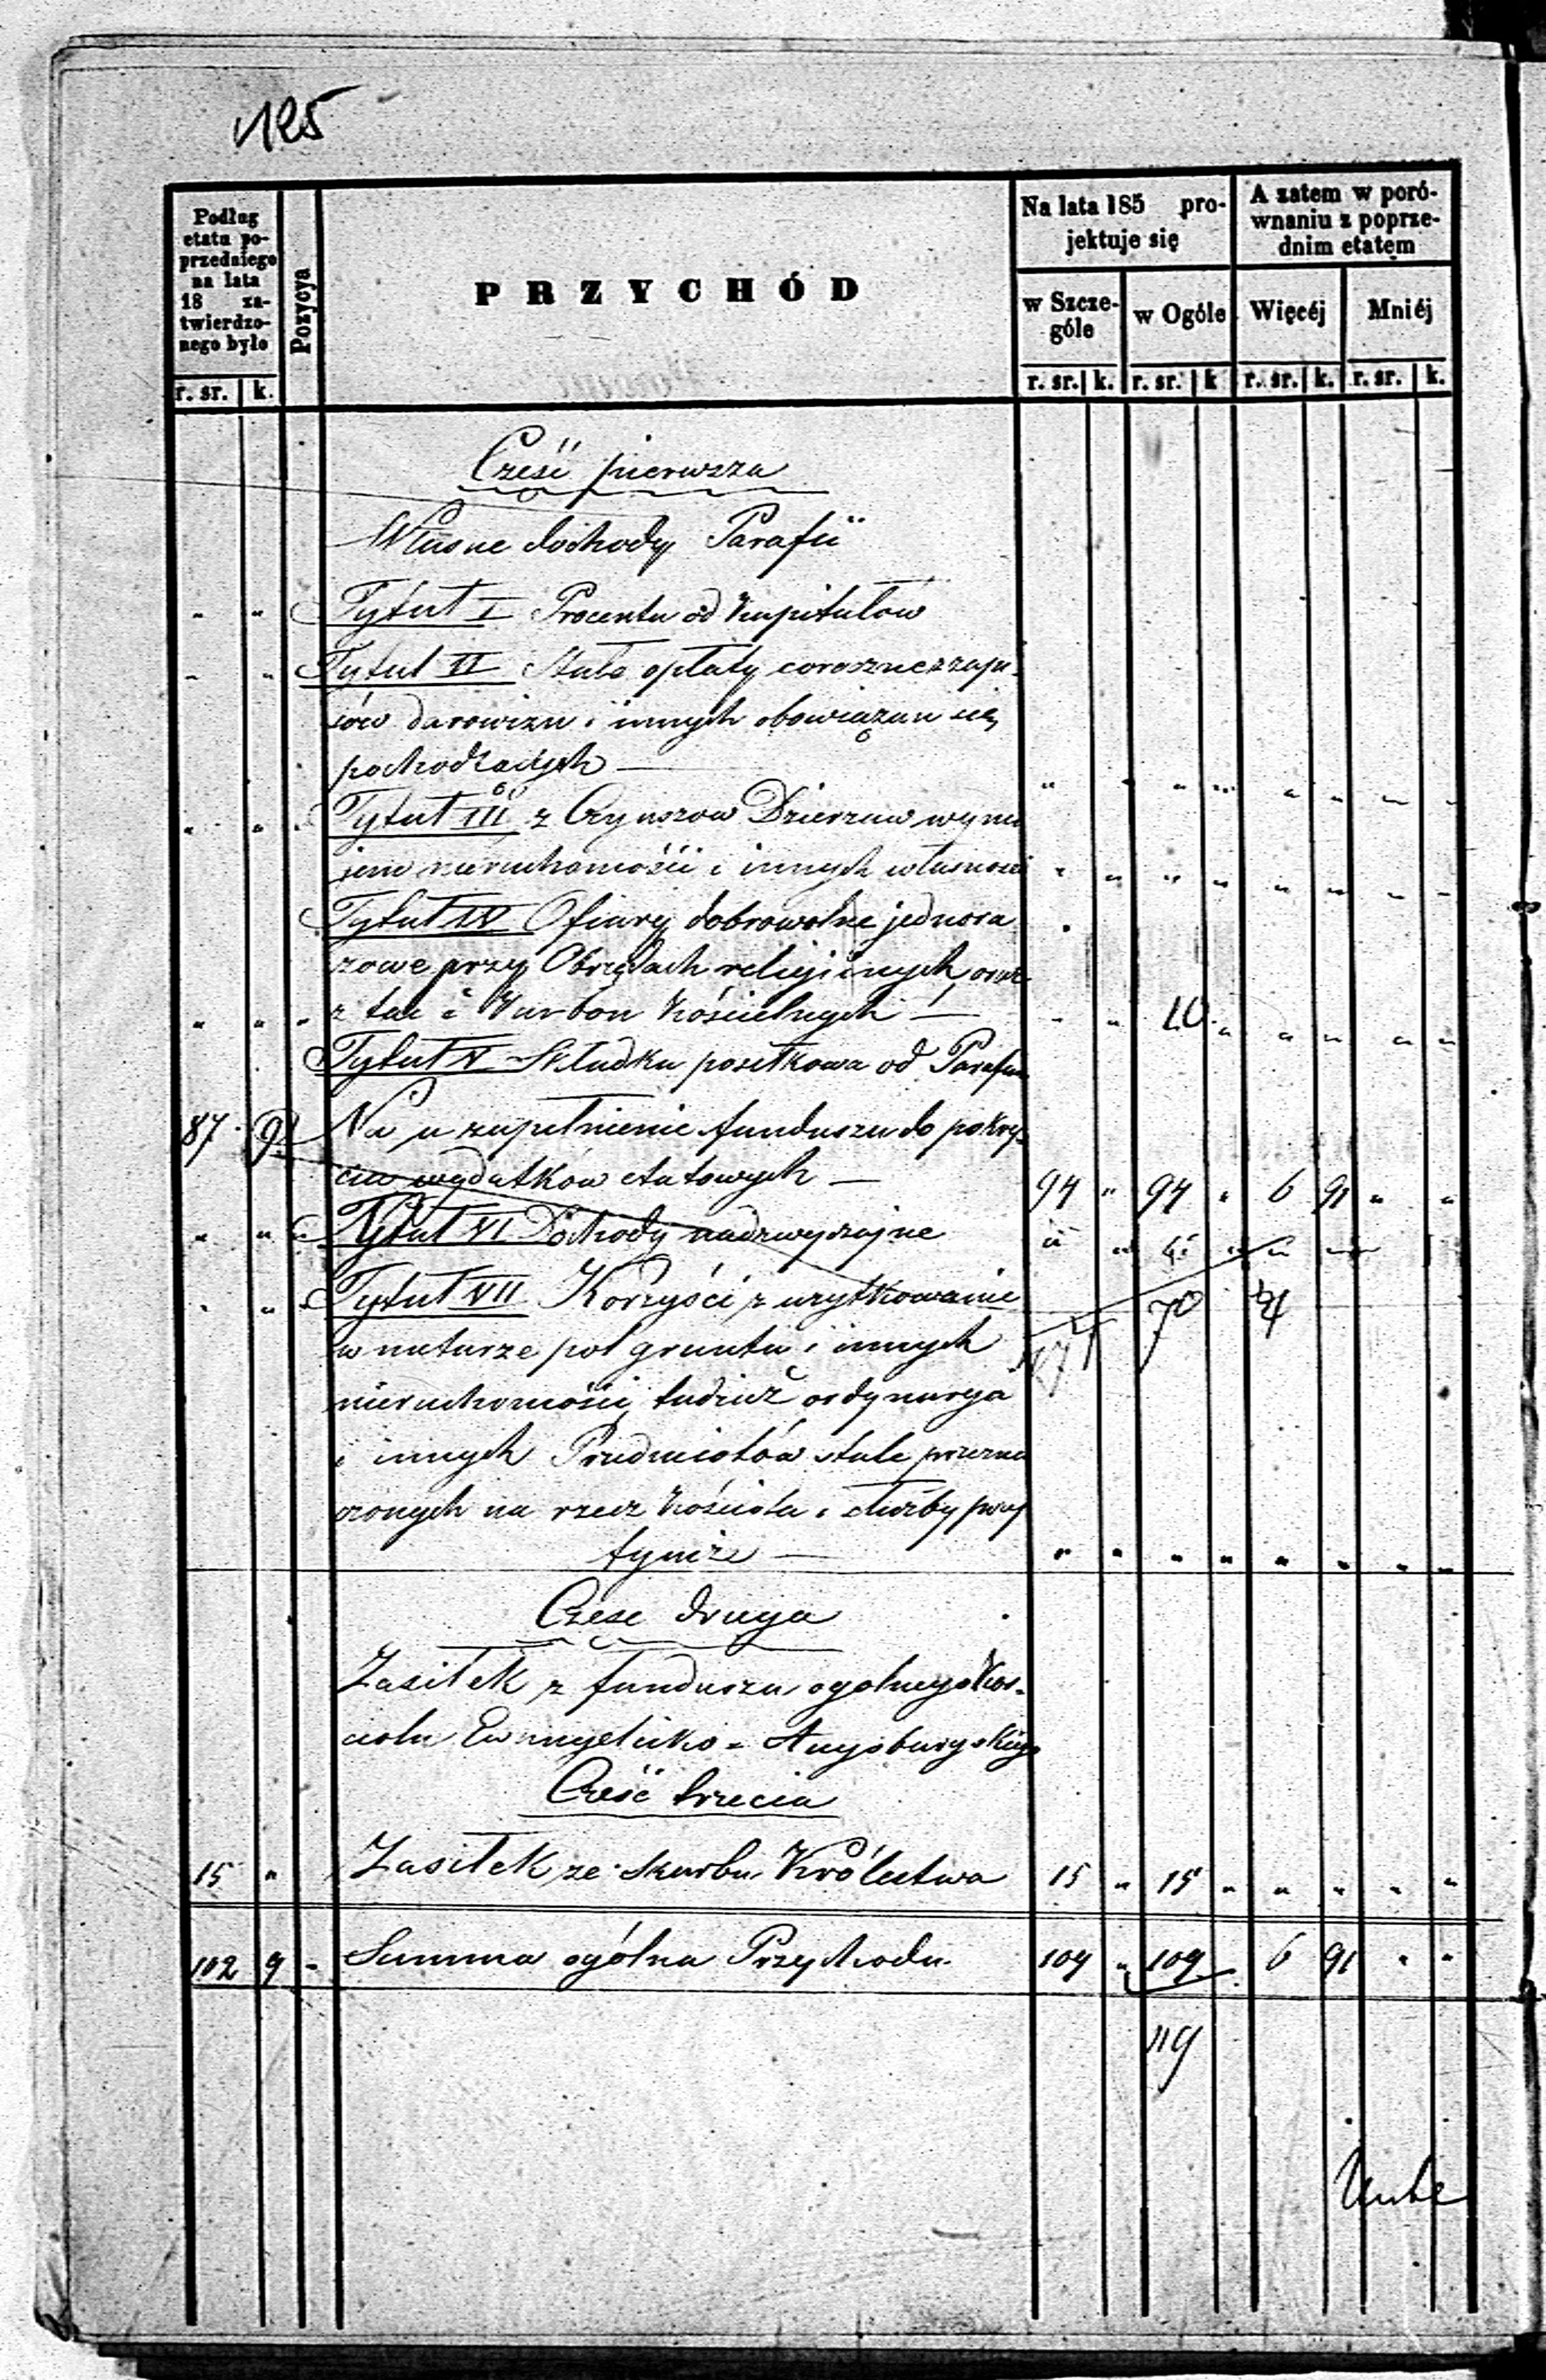 125
Podług
etatu po-
przedniego
na lata
18 za-
twierdzo-
nego było
r. sr. k.
Pozycya
PRZYCHÓD
Na lata 185 pro-
jektuje się
w Szcze-
góle
w Ogóle
r. sr. k. r. sr. k
A zatem w poró-
wnaniu z poprze-
dnim etatem
Więcéj Mniéj
r. sr. k. r. sr. k.
Część pierwsza
Własne dochody Parafii
" " Tytuł I Procenta od Kapitałów
" " Tytuł II Stałe opłaty coroczne z zapi-
sów darowizn i innych obowiązań się
pochodzących — " " " " " " " "
" " " Tytuł III z Czynszow Dzierzaw wyna
jem nieruchomości i innych własności " " " " " " " "
Tytuł IV Ofiary dobrowolne jednora
zowe przy Obrzędach religijnych oraz
" " " z tac i Karbon Kościelnych — " " 10 " " " " "
Tytuł V Składka posiłkowa od Parafian
87 9 Na uzupełnienie funduszu do pokry-
cia wydatków etatowych — 94 " 94 " 6 91 " "
" " " Tytuł VI Dochody nadzwyczajne " " " " " "
" " " Tytuł VII Korzyści z użytkowanie 70
w naturze pol gruntu i innych
nieruchomości tudzież ordynarya
i innych Przedmiotów stale przezna
czonych na rzecz Kościoła i służby przy
tymże — " " " " " " " "
Część druga
Zasiłek z funduszu ogolnego Koś-
ciola Ewangelicko = Augsburgskiego
Część trzecia
15 " Zasiłek ze Skarbu Królestwa 15 " 15 " " " " "
102 9 " Summa ogólna Przychodu 109 " 109 " 6 91 " "
119